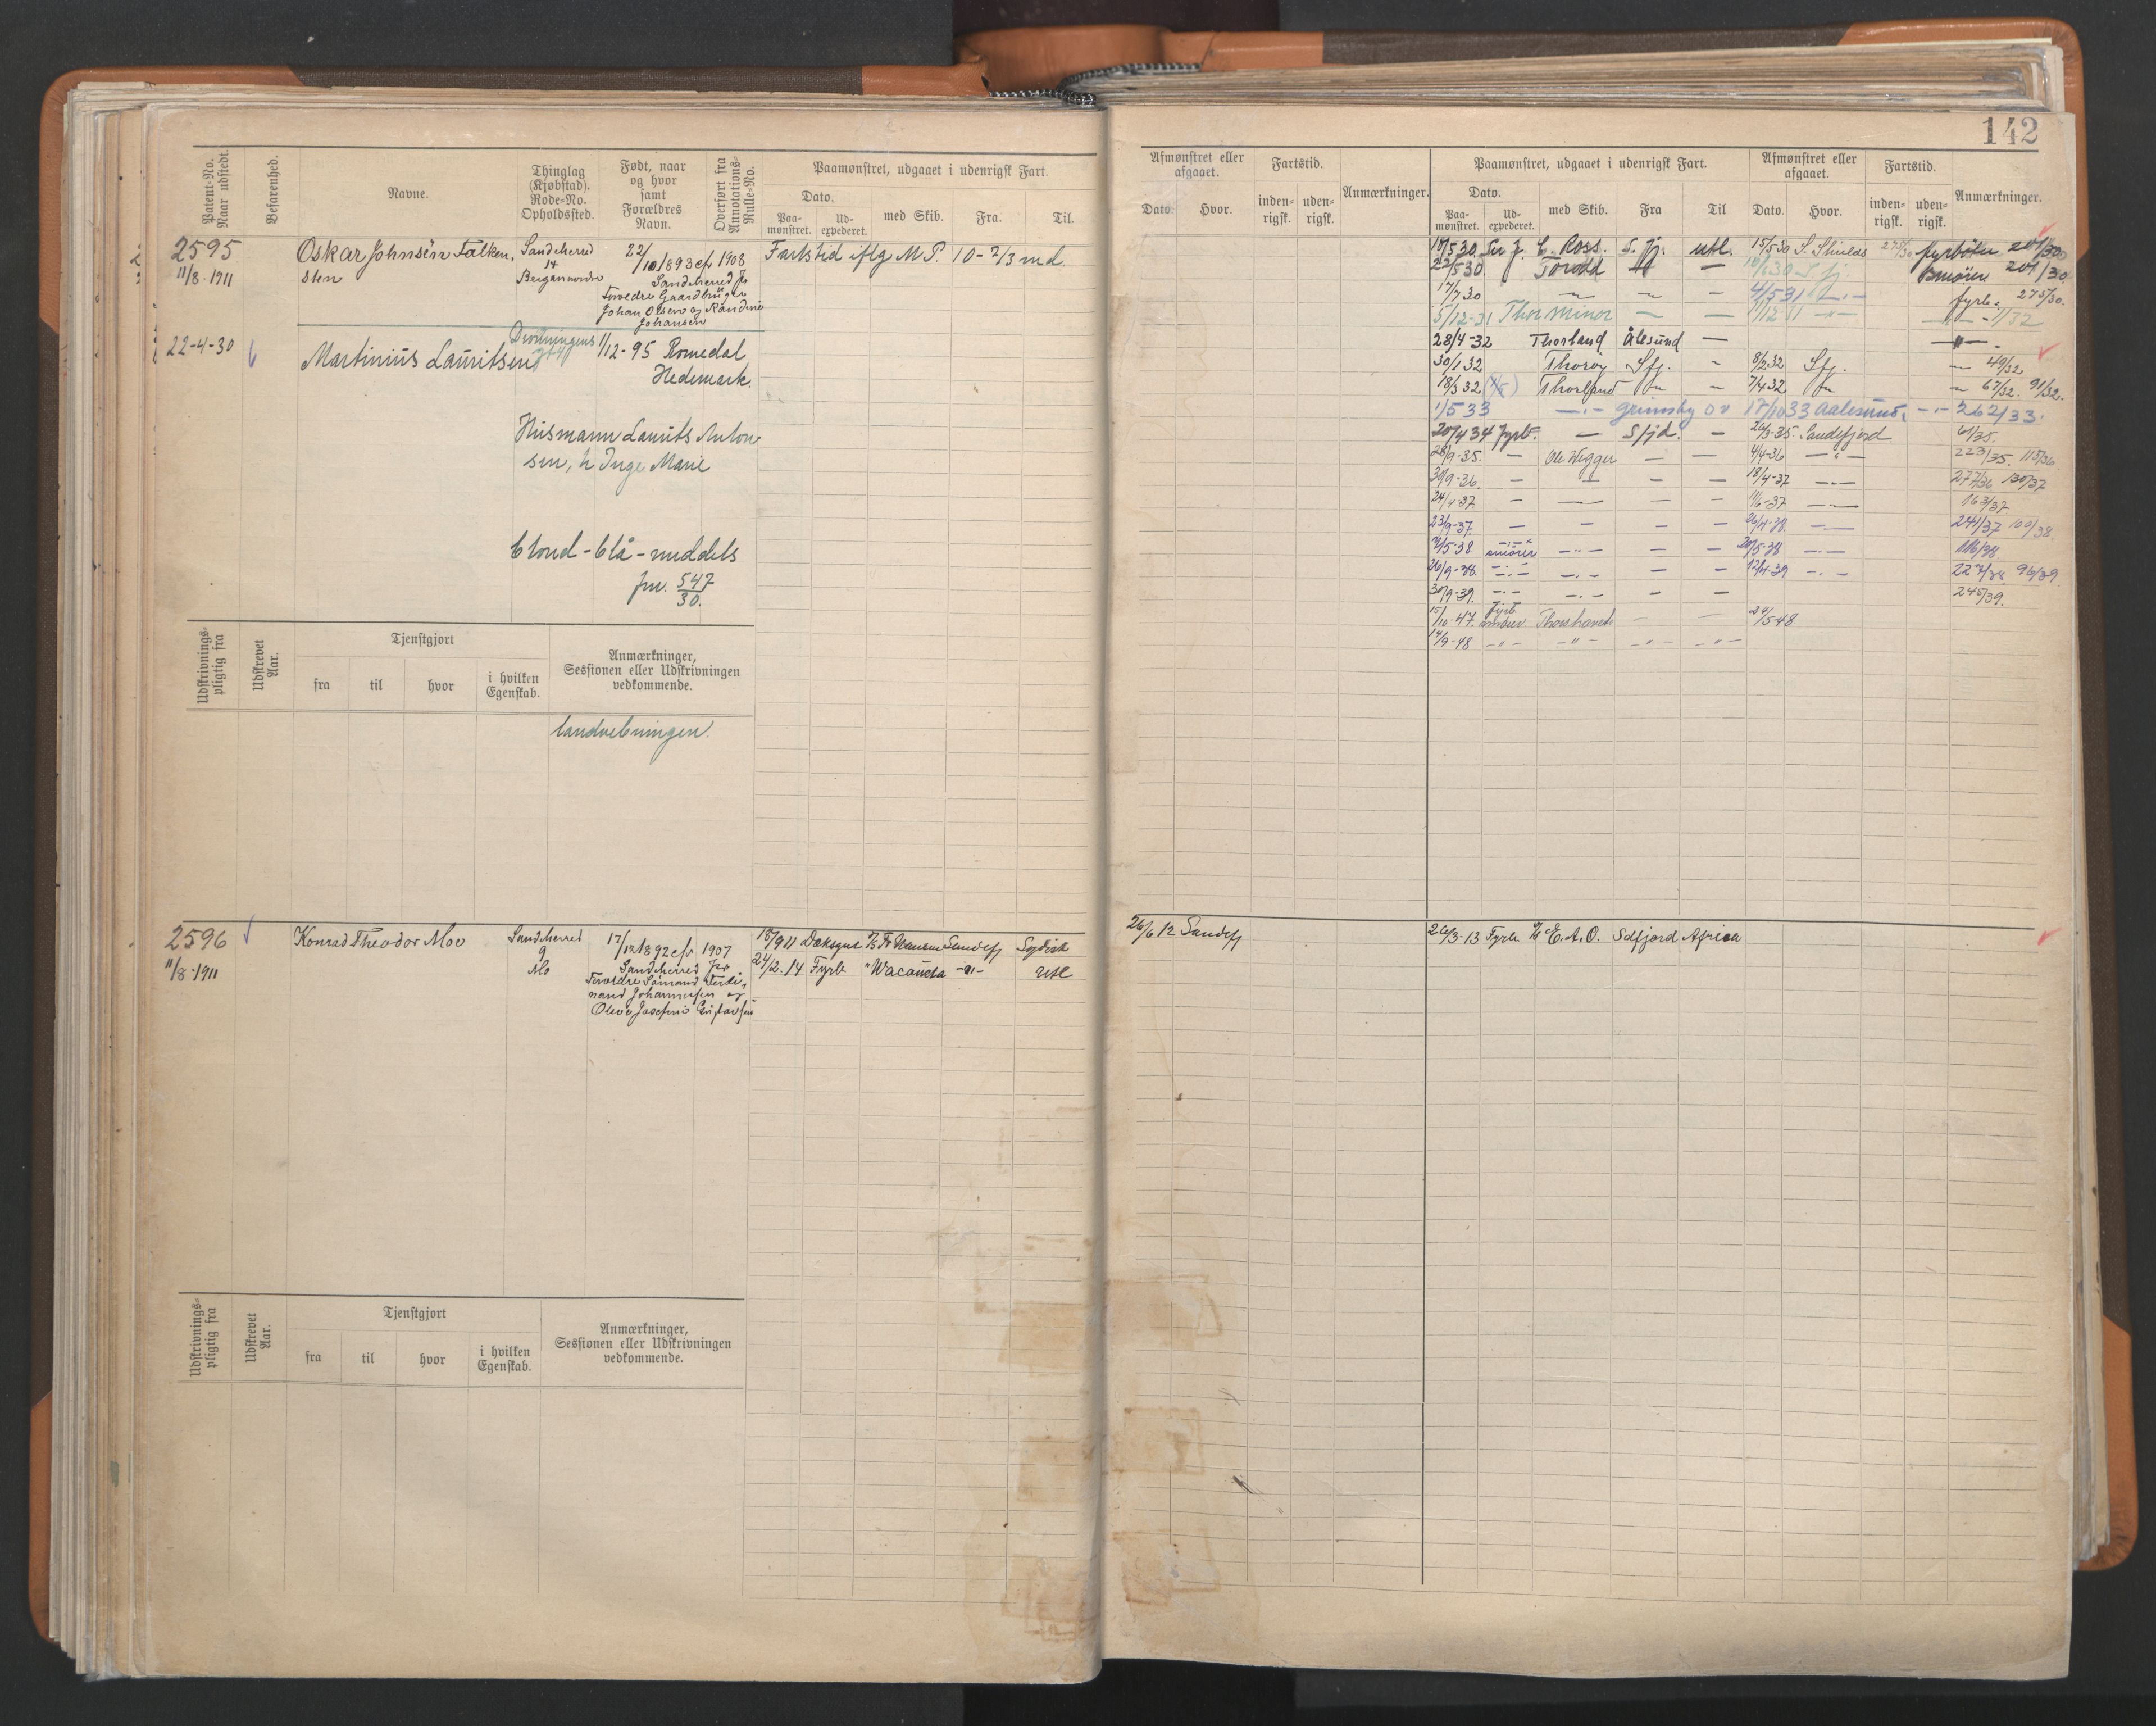 142
Patent-No. Naar udstedt.
Befarenhed.
Navne.
Thinglag (Kjøbstad). Rode-No. Opholdssted.
Født, naar og hvor samt Forældres Navn.
Overført fra Annotations-Rulle-No.
Paamønstret, udgaaet i udenrigsk Fart.
Dato.
Paa-mønstret.
Ud-expederet.
med Skib.
Fra.
Til.
Afmønstret eller afgaaet.
Dato.
Hvor.
Fartstid.
inden-rigsk.
uden-rigsk.
Anmærkninger.
Paamønstret, udgaaet i udenrigsk Fart.
Dato.
Paa-mønstret.
Ud-expederet.
med Skib.
Fra
Til
Afmønstret eller afgaaet.
Dato.
Hvor.
Fartstid.
inden-rigsk.
uden-rigsk.
Anmærkninger.
2595
11/8-1911
Oskar Johnsen Falken,
sten
Sandeherred
14
22/10 1893 efr 1908
Sandeherred Jr
Forældre Gaardbruger
Johan Olsen og Randine
Johansen
Fartstid iflg M.P. 10-2/3 md.
22-4-30
Martinius Lauritsen
Dronningens
1/12-95 Romedal
Hedemark.
Husmann Laurits Anton
sen, h Inge Marie
blond - blå - middels
Jnr. 547/30.
18/5 30 Sir J. C. Ross. S.fj. utl. 15/5 30 S. Shields fyrbøter 201/30
22/5 30 Torodd 201/30
17/7 30 4/5 31 fyrb. 275/30.
5/12-31 Thor minor — — 1/32
28/4-32 Thorland Ålesund —
30/1 32 Thorøy Sfj. 8/2 32 Sfj. 49/32
18/3 32 Thorland 7/4 32 67/32. 91/32.
1/5 33 —.— Grimsby 17/10 33 Aalesund. —.— 262/33.
20/4 34 fyrb. — Sfjd. — 26/3-35. Sandefjord 61/35.
28/9-35. — Ole Wegger — — 4/4-36 —"— 223/35. 115/36
30/9-36. — — — — 18/4-37 —.— 277/36 130/37
24/4-37. — — — — 11/6-37 —.— 163/37.
23/9-37. — — — — —.— 241/37 100/38.
2/5-38 smører —.— — — 20/5-38 —.— 116/38.
26/9-38. —.— —.— — — 12/4-39 —.— 227/38 96/39.
30/9-39. —.— —.— — — 245/39.
15/10-47. fyrb. smører Thorshavet — — 24/5-48
14/9-48 —"— —"— —"— —"—
Udskrivnings-pligtig fra
Udskrevet Aar.
Tjenstgjort
fra
til
hvor
i hvilken Egenskab.
Anmærkninger, Sessionen eller Udskrivningen vedkommende.
landvebningen.
2596
11/8-1911
Konrad Theodor Moo
Sandeherred
9
Mo
17/12 1892 efr 1907
Sandeherred Jr.
Forældre Sømand Ferdi,
nand Johannesen og
Oleve Josefine Gustavsen
18/9 11 Dæksgut Sandefj
24/2.14 Fyrb "Wacousta —"— utl
26/6 12 Sandefj
26/3-13 Fyrb E.A.O. Sdfjord Africa
Udskrivnings-pligtig fra
Udskrevet Aar.
Tjenstgjort
fra
til
hvor
i hvilken Egenskab.
Anmærkninger, Sessionen eller Udskrivningen vedkommende.